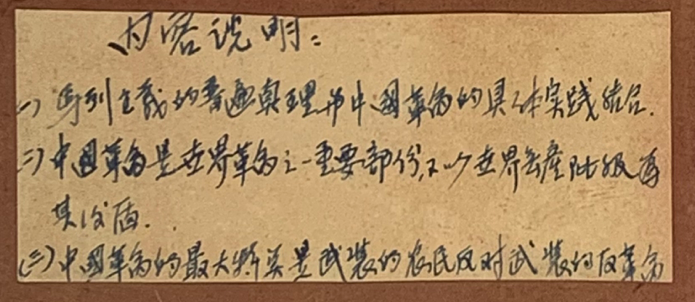 内容说明：
(一) 马列主義的普遍真理与中國革命的具体实践结合.
(二) 中國革命是世界革命之一重要部份, 又以世界無產阶级為
其後盾.
(三) 中國革命的最大特点是武装的农民反对武装的反革命